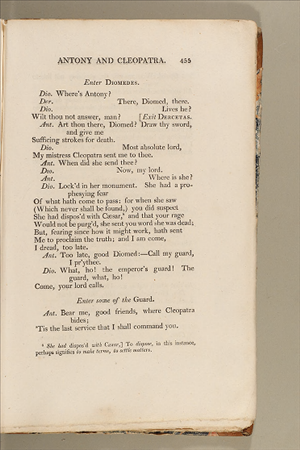 ANTONY AND CLEOPATRA. 455
Enter DIOMEDES.
Dio. Where's Antony?
Der. There, Diomed, there.
Dio. Lives he?
Wilt thou not answer, man? [Exit DERCETAS.
Ant. Art thou there, Diomed? Draw thy sword,
and give me
Sufficing strokes for death.
Dio. Most absolute lord,
My mistress Cleopatra sent me to thee.
Ant. When did she send thee?
Dio. Now, my lord.
Ant. Where is she?
Dio. Lock'd in her monument. She had a pro-
phesying fear
Of what hath come to pass: for when she saw
(Which never shall be found,) you did suspect
She had dispos'd with Cæsar,⁴ and that your rage
Would not be purg'd, she sent you word she was dead;
But, fearing since how it might work, hath sent
Me to proclaim the truth; and I am come,
I dread, too late.
Ant. Too late, good Diomed:—Call my guard,
I pr'ythee.
Dio. What, ho! the emperor's guard! The
guard, what, ho!
Come, your lord calls.
Enter some of the Guard.
Ant. Bear me, good friends, where Cleopatra
bides;
'Tis the last service that I shall command you.
⁴ She had dispos'd with Cæsar,] To dispose, in this instance,
perhaps signifies to make terms, to settle matters.